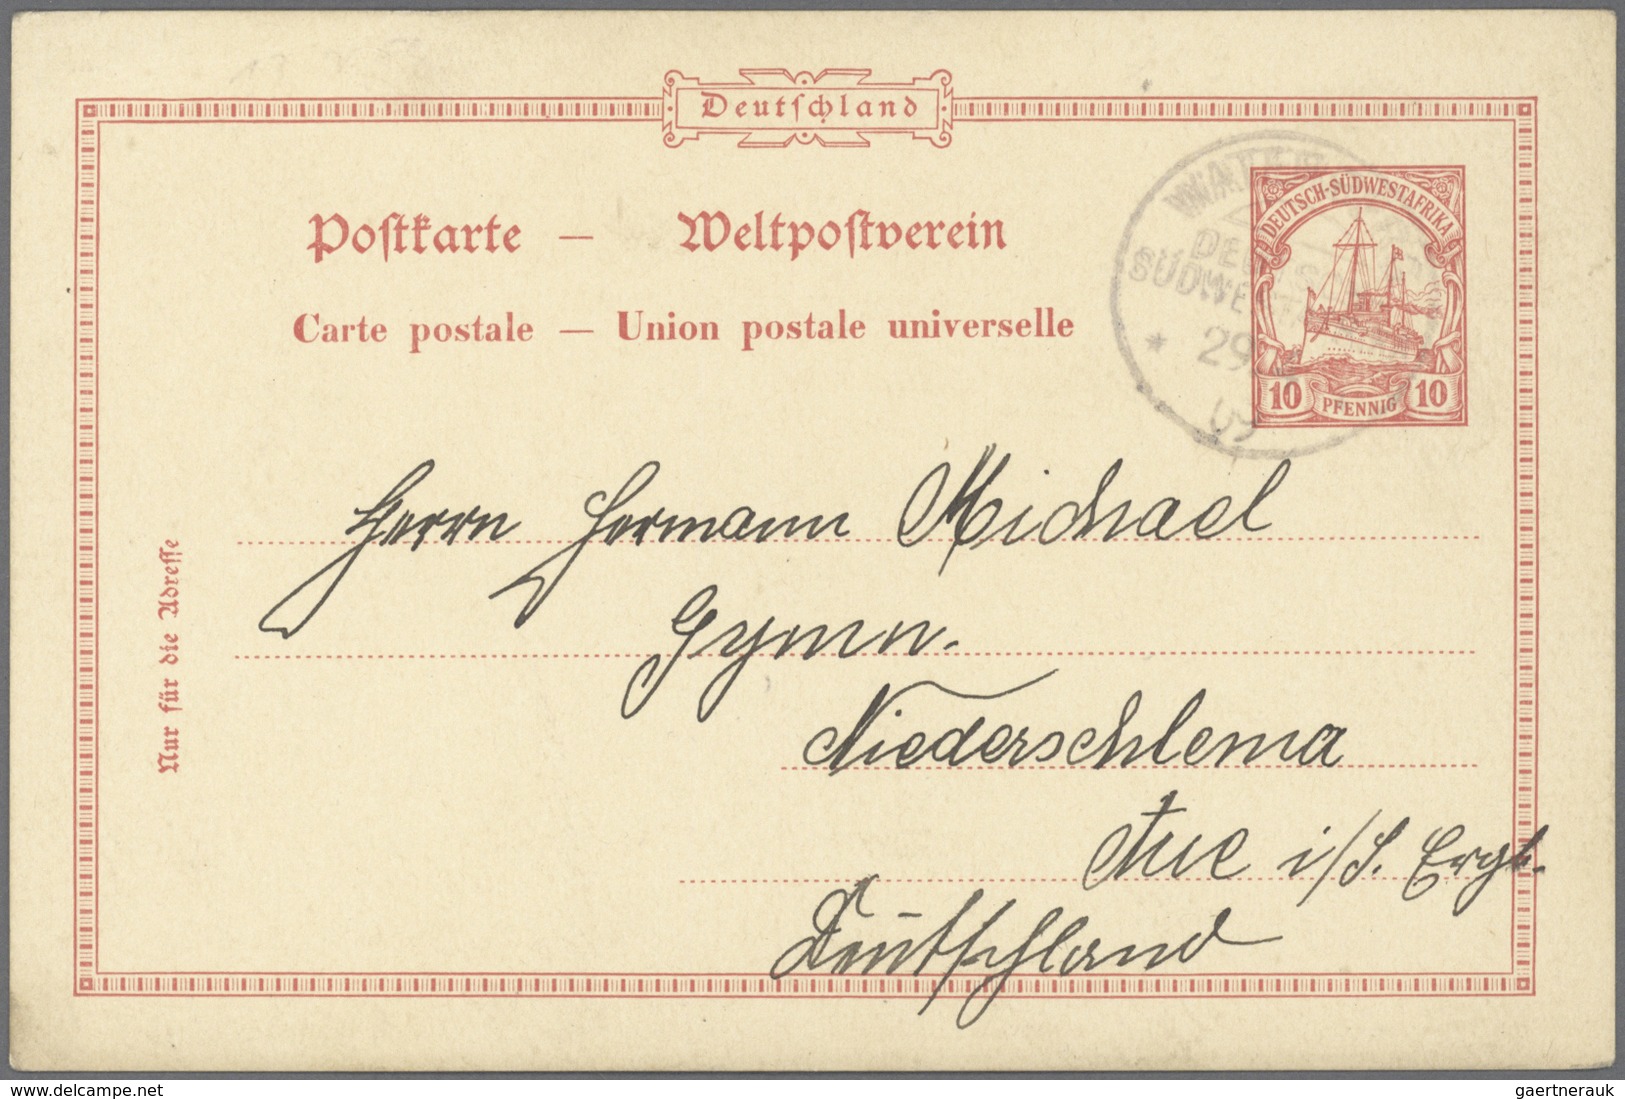 Deutschland
Postkarte — Weltpostverein
Carte postale — Union postale universelle
DEUTSCH-SÜDWESTAFRIKA
10 PFENNIG 10
SÜDWEST
* 29
09
Nur für die Adresse
Herrn Hermann Michael
Gymn.
Niederschlema
Aue i/S. Ergb.
Deutschland
www.delcampe.net
gaertnerauk